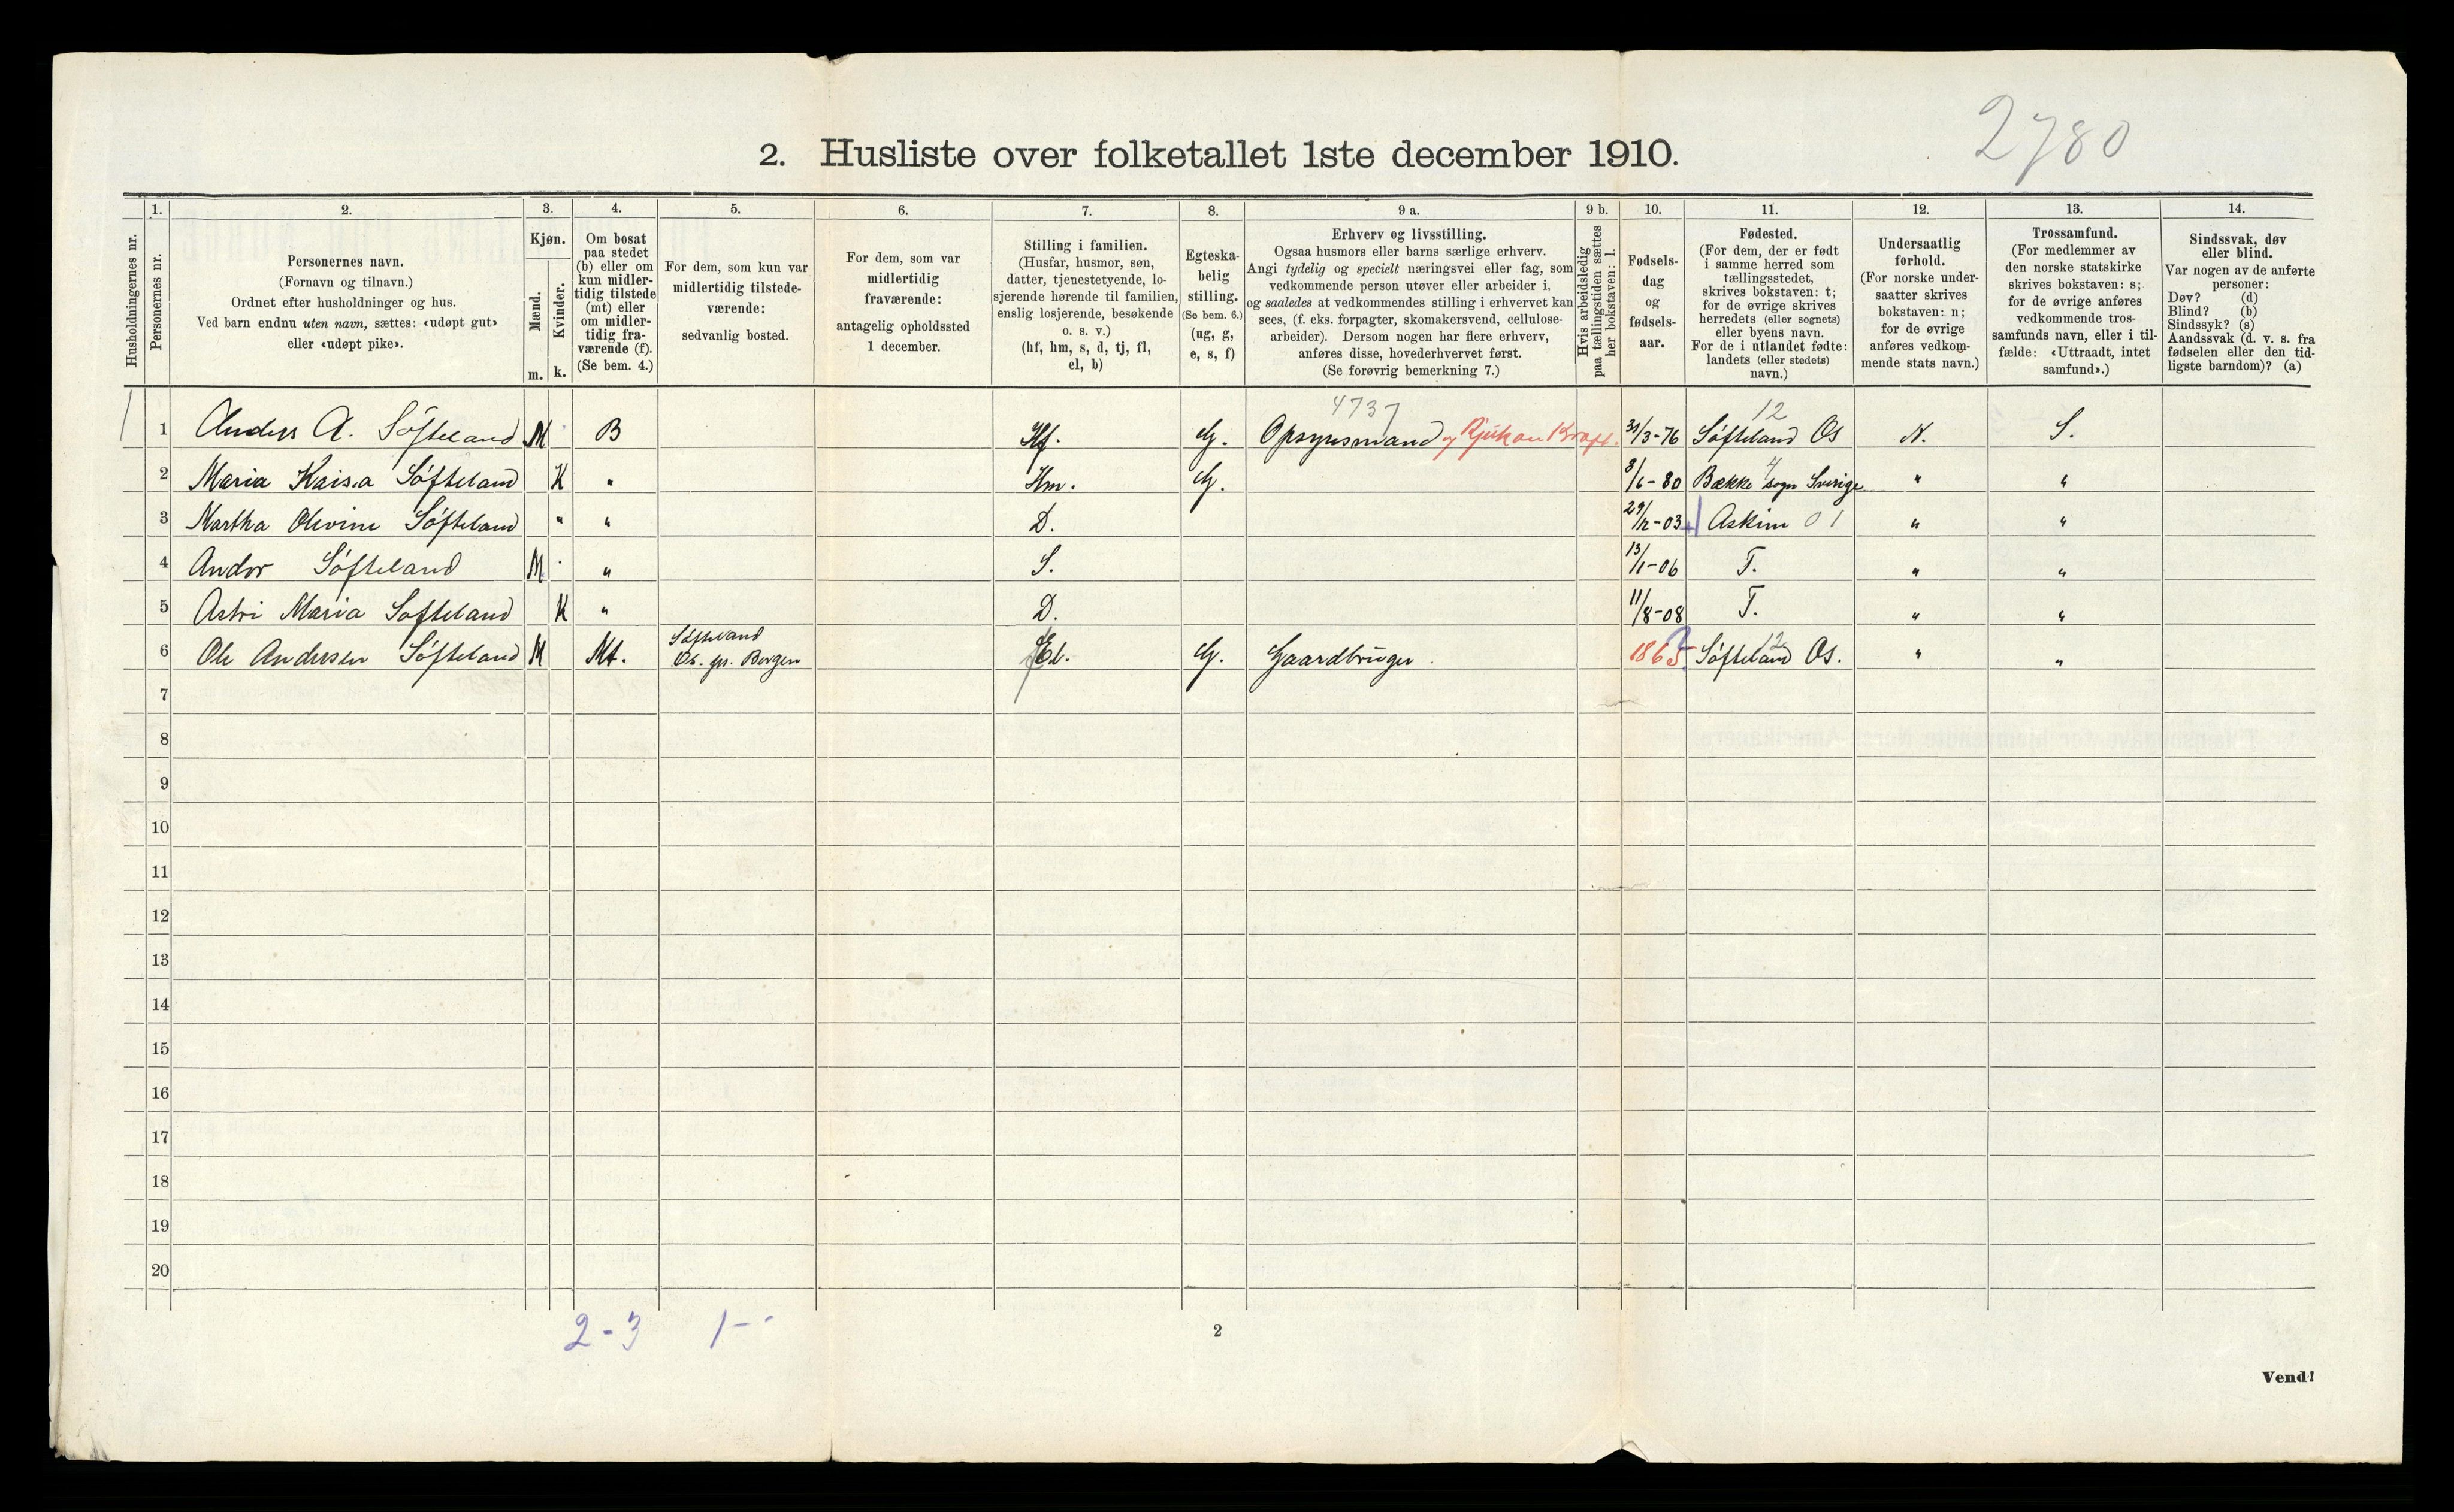 2780
2. Husliste over folketallet 1ste december 1910.
Husholdningernes nr.
1.
Personernes nr.
2.
Personernes navn.
(Fornavn og tilnavn.)
Ordnet efter husholdninger og hus.
Ved barn endnu uten navn, sættes: «udøpt gut»
eller «udøpt pike».
3.
Kjøn.
Mænd.
m.
Kvinder.
k.
4.
Om bosat
paa stedet
(b) eller om
kun midler-
tidig tilstede
(mt) eller
om midler-
tidig fra-
værende (f).
(Se bem. 4.)
5.
For dem, som kun var
midlertidig tilstede-
værende:
sedvanlig bosted.
6.
For dem, som var
midlertidig
fraværende:
antagelig opholdssted
1 december.
7.
Stilling i familien.
(Husfar, husmor, søn,
datter, tjenestetyende, lo-
sjerende hørende til familien,
enslig losjerende, besøkende
o. s. v.)
(hf, hm, s, d, tj, fl,
el, b)
8.
Egteska-
belig
stilling.
(Se bem. 6.)
(ug, g,
e, s, f)
9 a.
Erhverv og livsstilling.
Ogsaa husmors eller barns særlige erhverv.
Angi tydelig og specielt næringsvei eller fag, som
vedkommende person utøver eller arbeider i,
og saaledes at vedkommendes stilling i erhvervet kan
sees, (f. eks. forpagter, skomakersvend, cellulose-
arbeider). Dersom nogen har flere erhverv,
anføres disse, hovederhvervet først.
(Se forøvrig bemerkning 7.)
9 b.
Hvis arbeidsledig
paa tællingstiden sættes
her bokstaven: l.
10.
Fødsels-
dag
og
fødsels-
aar.
11.
Fødested.
(For dem, der er født
i samme herred som
tællingsstedet,
skrives bokstaven: t;
for de øvrige skrives
herredets (eller sognets)
eller byens navn.
For de i utlandet fødte:
landets (eller stedets)
navn.)
12.
Undersaatlig
forhold.
(For norske under-
saatter skrives
bokstaven: n;
for de øvrige
anføres vedkom-
mende stats navn.)
13.
Trossamfund.
(For medlemmer av
den norske statskirke
skrives bokstaven: s;
for de øvrige anføres
vedkommende tros-
samfunds navn, eller i til-
fælde: «Uttraadt, intet
samfund».)
14.
Sindssvak, døv
eller blind.
Var nogen av de anførte
personer:
Døv? (d)
Blind? (b)
Sindssyk? (s)
Aandssvak (d. v. s. fra
fødselen eller den tid-
ligste barndom)? (a)
4737 12
1 1 Anders A. Søfteland M B Hf. G. Opsynsmand v Rjukan Kraft. 31/3-76 Søfteland Os N. S.
4
2 Maria Kaisa Søfteland K " Hm. G. 8/6-80 Bække sogn Sverige " "
3 Martha Olivine Søfteland " " D. 29/12-03 Askim 01 " "
4 Andor Søfteland M " S. 13/1-06 T. " "
5 Astri Maria Søfteland K " D. 11/8-08 T. " "
Søfteland 12
6 Ole Andersen Søfteland M Mt. Os. pr. Bergen El. G. Gaardbruger. 1865 Søfteland Os. " "
7
8
9
10
11
12
13
14
15
16
17
18
19
20
2-3 1--
2
Vend!